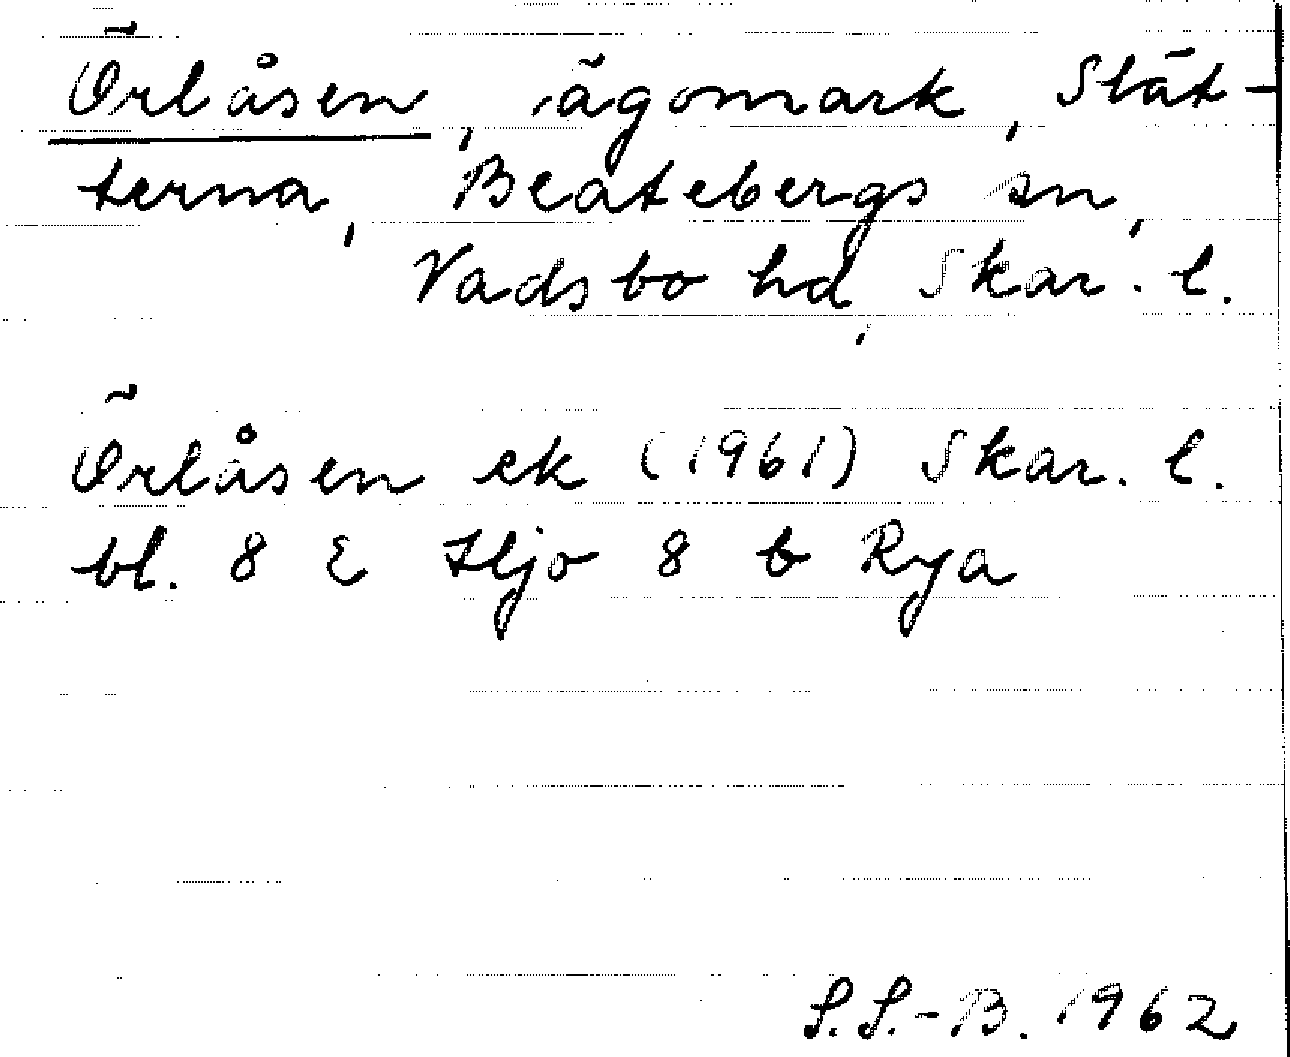 Örlåsen, ägomark, Slät-
terna, Beatebergs sn,
Vadsbo hd, Skar. l.
Örlåsen ek (1961) Skar. l.
bl. 8 E Hjo 8 b Rya
S.S.-B. 1962